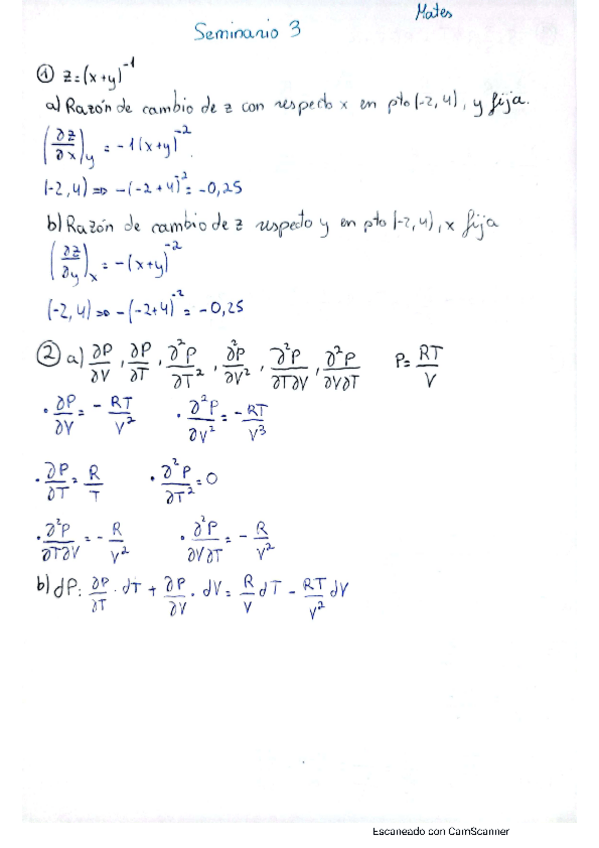 Mates
Seminario 3
① z=(x+y)⁻¹
a) Razón de cambio de z con respecto x en pto (-2,4), y fija.
(∂z/∂x)y = -1(x+y)⁻².
(-2,4) ⇒ -(-2+4)⁻² = -0,25
b) Razón de cambio de z respecto y en pto (-2,4), x fija
(∂z/∂y)x = -(x+y)⁻²
(-2,4) ⇒ -(-2+4)⁻² = -0,25
② a) ∂P/∂V, ∂P/∂T, ∂²P/∂T², ∂²P/∂V², ∂²P/∂T∂V, ∂²P/∂V∂T P= RT/V
· ∂P/∂V = - RT/V² · ∂²P/∂V² = -RT/V³
· ∂P/∂T = R/T · ∂²P/∂T² = 0
· ∂²P/∂T∂V = - R/V² · ∂²P/∂V∂T = - R/V²
b) dP: ∂P/∂T · dT + ∂P/∂V · dV = R/V dT - RT/V² dV
Escaneado con CamScanner